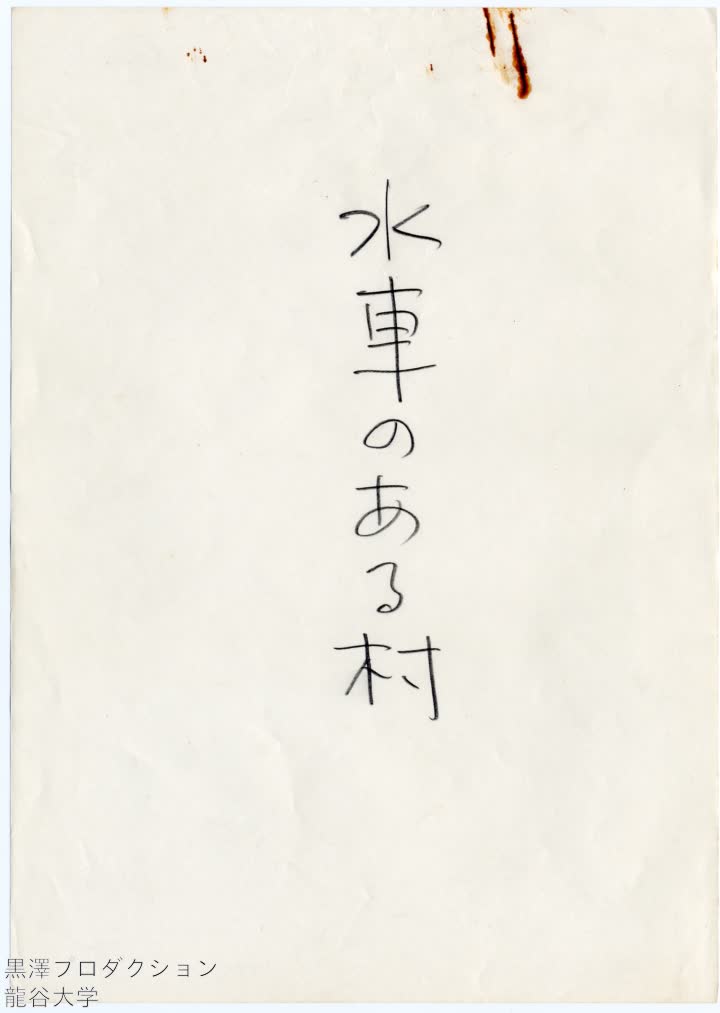 水車のある村
黒澤フロダクション
龍谷大学